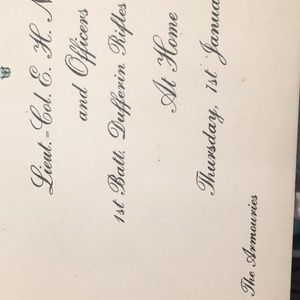 Lieut.-Col. E. H.
and Officers
1st Batt. Dufferin Rifles
At Home
Thursday, 1st
The Armouries